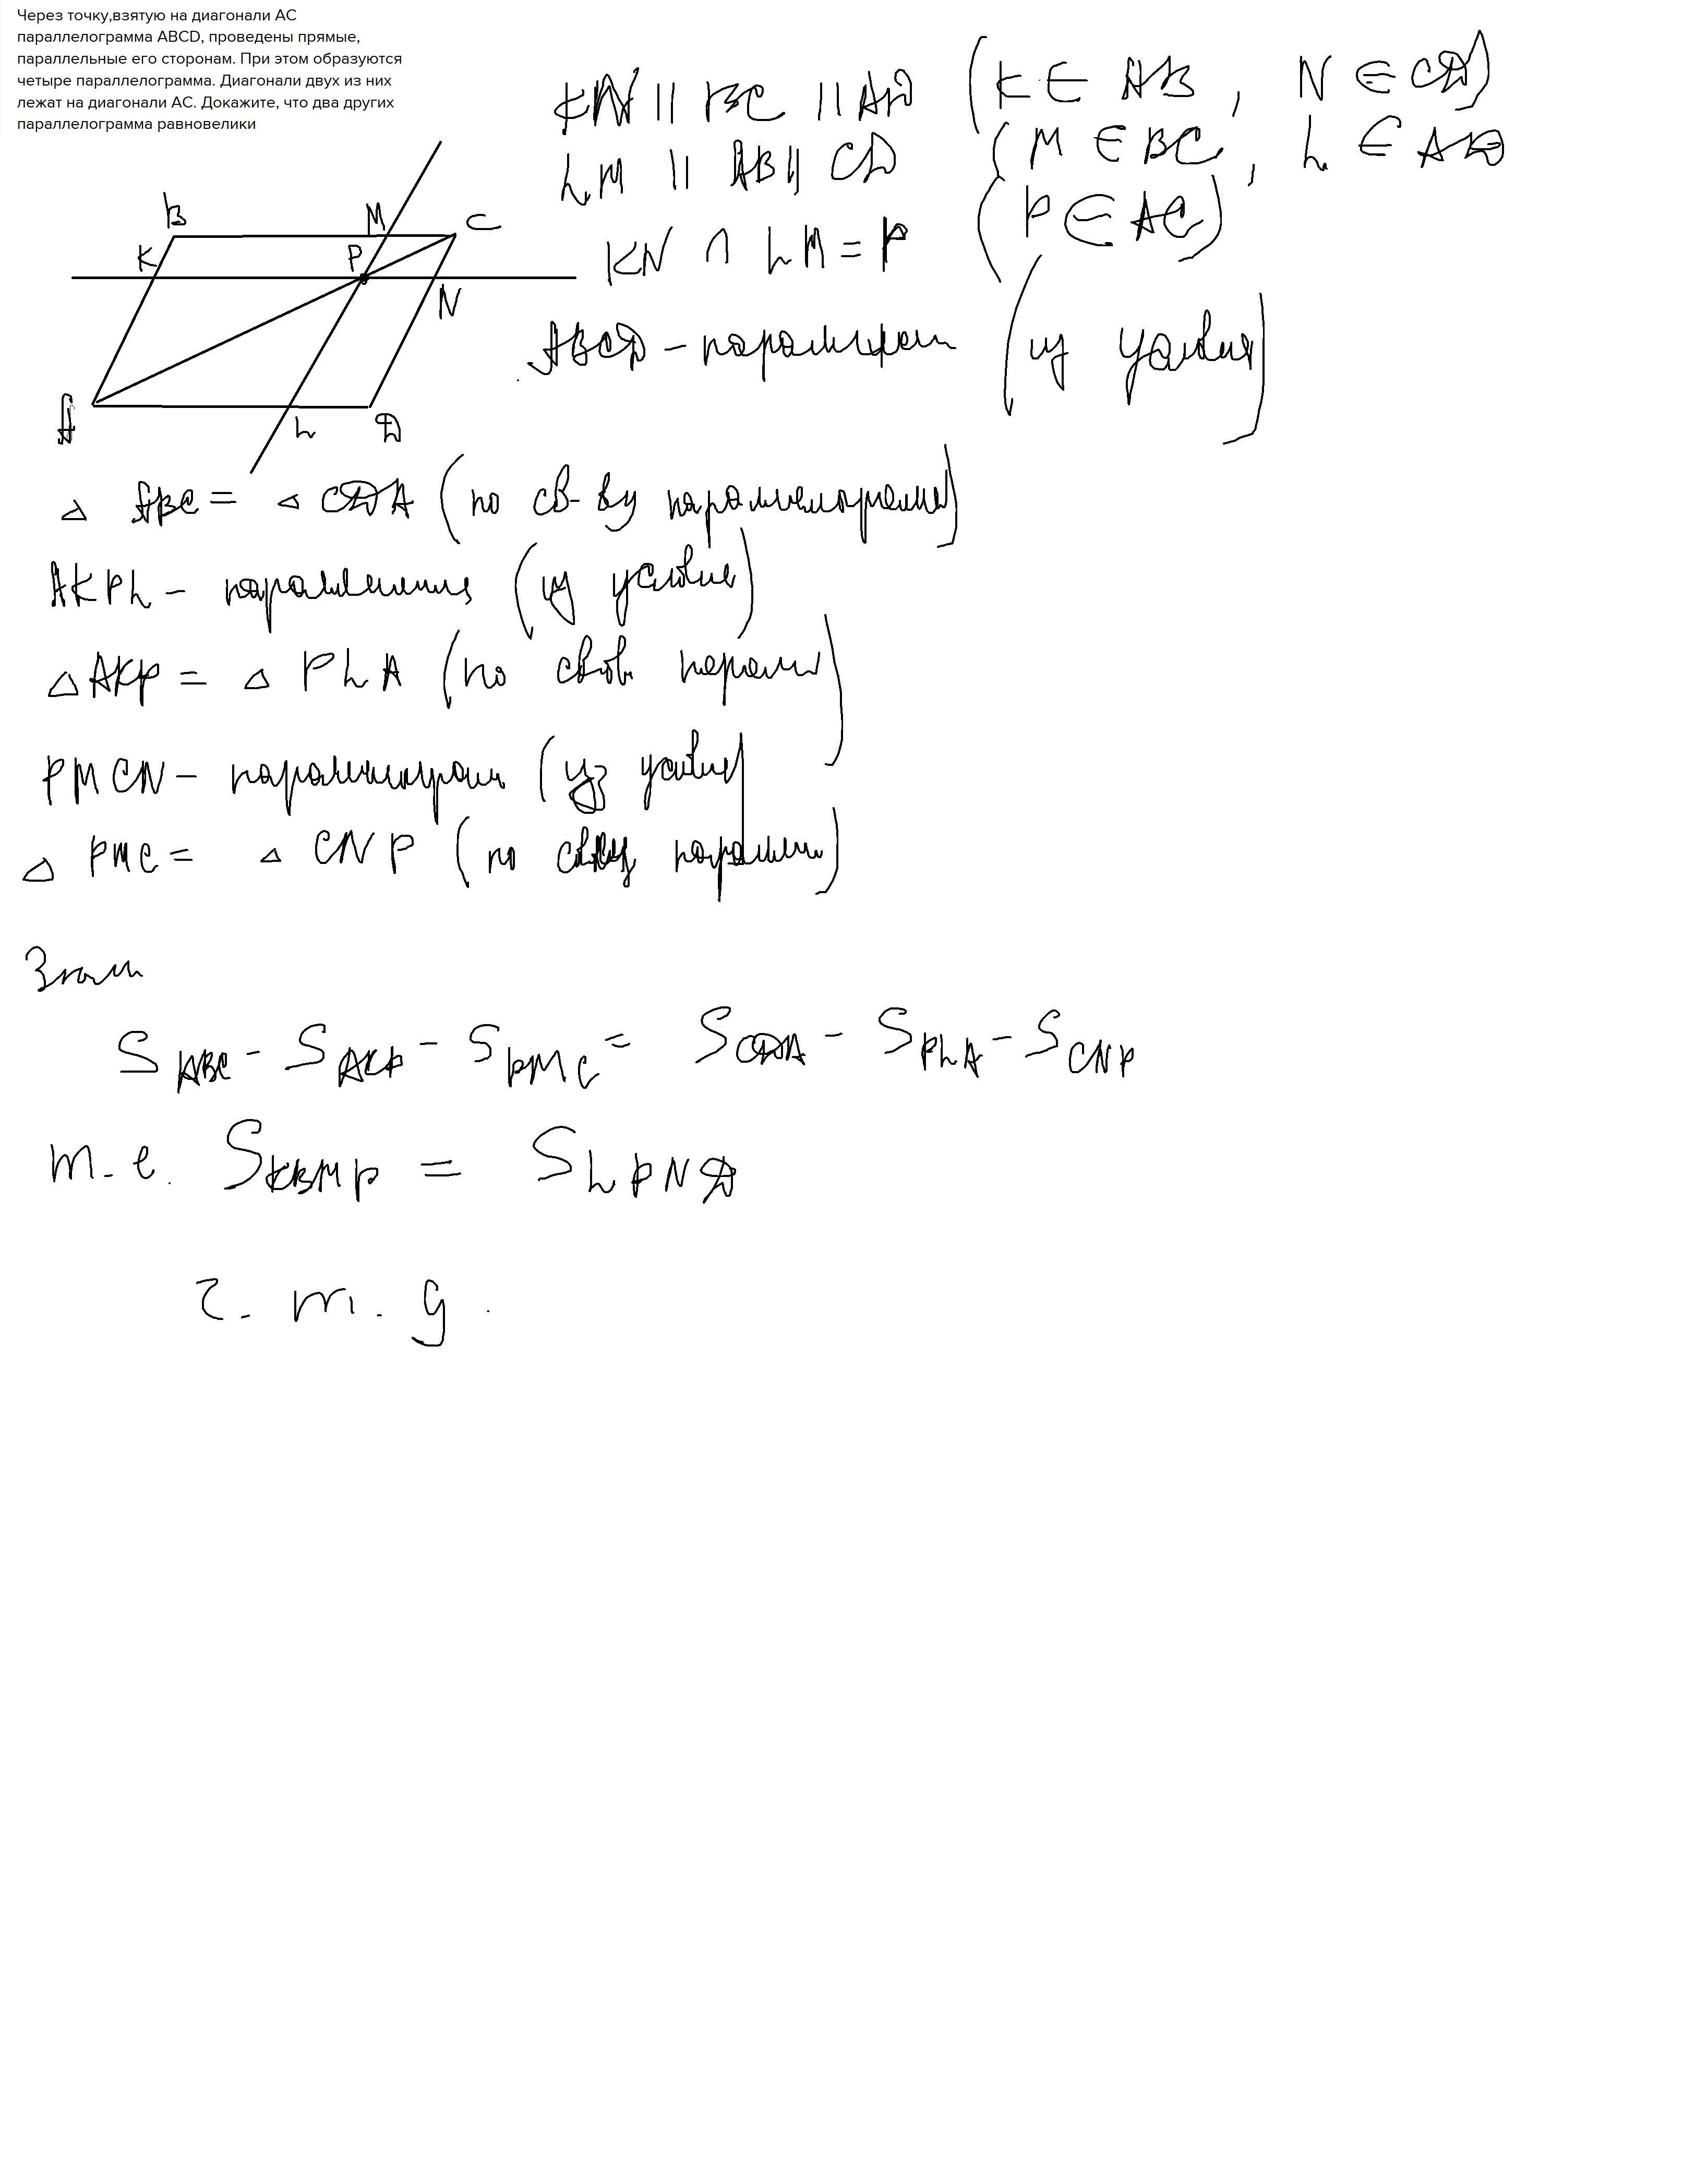 Через точку,взятую на диагонали АС
параллелограмма ABCD, проведены прямые,
параллельные его сторонам. При этом образуются
четыре параллелограмма. Диагонали двух из них
лежат на диагонали АС. Докажите, что два других
параллелограмма равновелики
KN || BC || AD (K ∈ AB, N ∈ CD)
LM || AB || CD (M ∈ BC, L ∈ AD
KN ∩ LM = P (P ∈ AC)
ABCD - (из условия)
B M C
K P
N
A L D
△ ABC = △ CDA (по св-ву параллелограмма)
AKPL - (из условия)
△ AKP = △ PLA (по паралл)
PMCN - (из условия)
△ PMC = △ CNP (по паралл)
Знач
S ABC - S AKP - S PMC = S CDA - S PLA - S CNP
т.е. S KBMP = S LPND
ч.т.д.